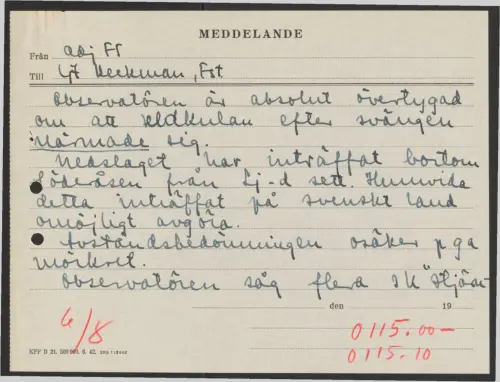 MEDDELANDE
Från adj FF
Till Lt Heckman, Fst
Observatören är absolut övertygad
om att eldkulan efter svängen
närmade sig.
Nedslaget har inträffat bortom
Söderåsen från Lj-d sett. Huruvida
detta inträffat på svenskt land
omöjligt avgöra.
Avståndsbedömningen osäker p ga
mörkret.
Observatören såg flera sk "stjär
den 19
6/8
0115.00-
0115.10
KFF D 21. 500 000. 6. 42.